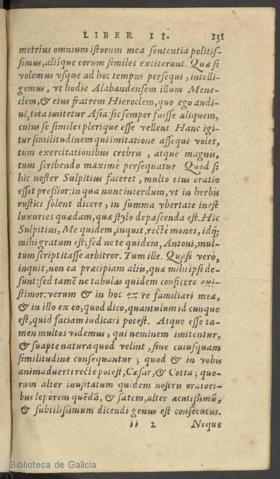 LIBER II. 131
metrius omnium istorum mea sententia politis-
simus, aliique eorum similes exciterunt. Quæ si
volemus vsque ad hoc tempus persequi, intelli-
gemus, vt hodie Alabandensem illum Mene-
clem, & eius fratrem Hieroclem, quo ego audi-
ui, tota imitetur Asia: sic semper fuisse aliquem,
cuius se similes plerique esse vellent. Hanc igi-
tur similitudinem qui imitatione assequi volet,
tum exercitationibus crebris, atque magnis,
tum scribendo maximè persequatur. Quod si
hic noster Sulpitius faceret, multo eius oratio
esset pressior: in qua nunc interdum, vt in herbis
rustici solent dicere, in summa vbertate inest
luxuries quædam, quæ stylo depascenda est. Hic
Sulpitius, Me quidem, inquit, rectè mones, idq́;
mihi gratum est: sed ne te quidem, Antoni, mul-
tum scriptitasse arbitror. Tum ille. Quasi verò,
inquit, non ea præcipiam aliis, quæ mihi ipsi de-
sunt: sed tamẽ ne tabulas quidem conficere exi-
stimor. verum & in hoc ex re familiari mea,
& in illo ex eo, quod dico, quantulum id cunque
est, quid faciam iudicari potest. Atque esse ta-
men multos videmus, qui neminem imitentur,
& suapte natura quod velint, sine cuiusquam
similitudine consequantur; quod & in vobis
animaduerti rectè potest, Cæsar, & Cotta; quo-
rum alter inusitatum quidem nostris oratori-
bus leporem quẽdã, & salem, alter acutissimũ,
& subtilissimum dicendi genus est consecutus.
ii 2. Neque
Biblioteca de Galicia